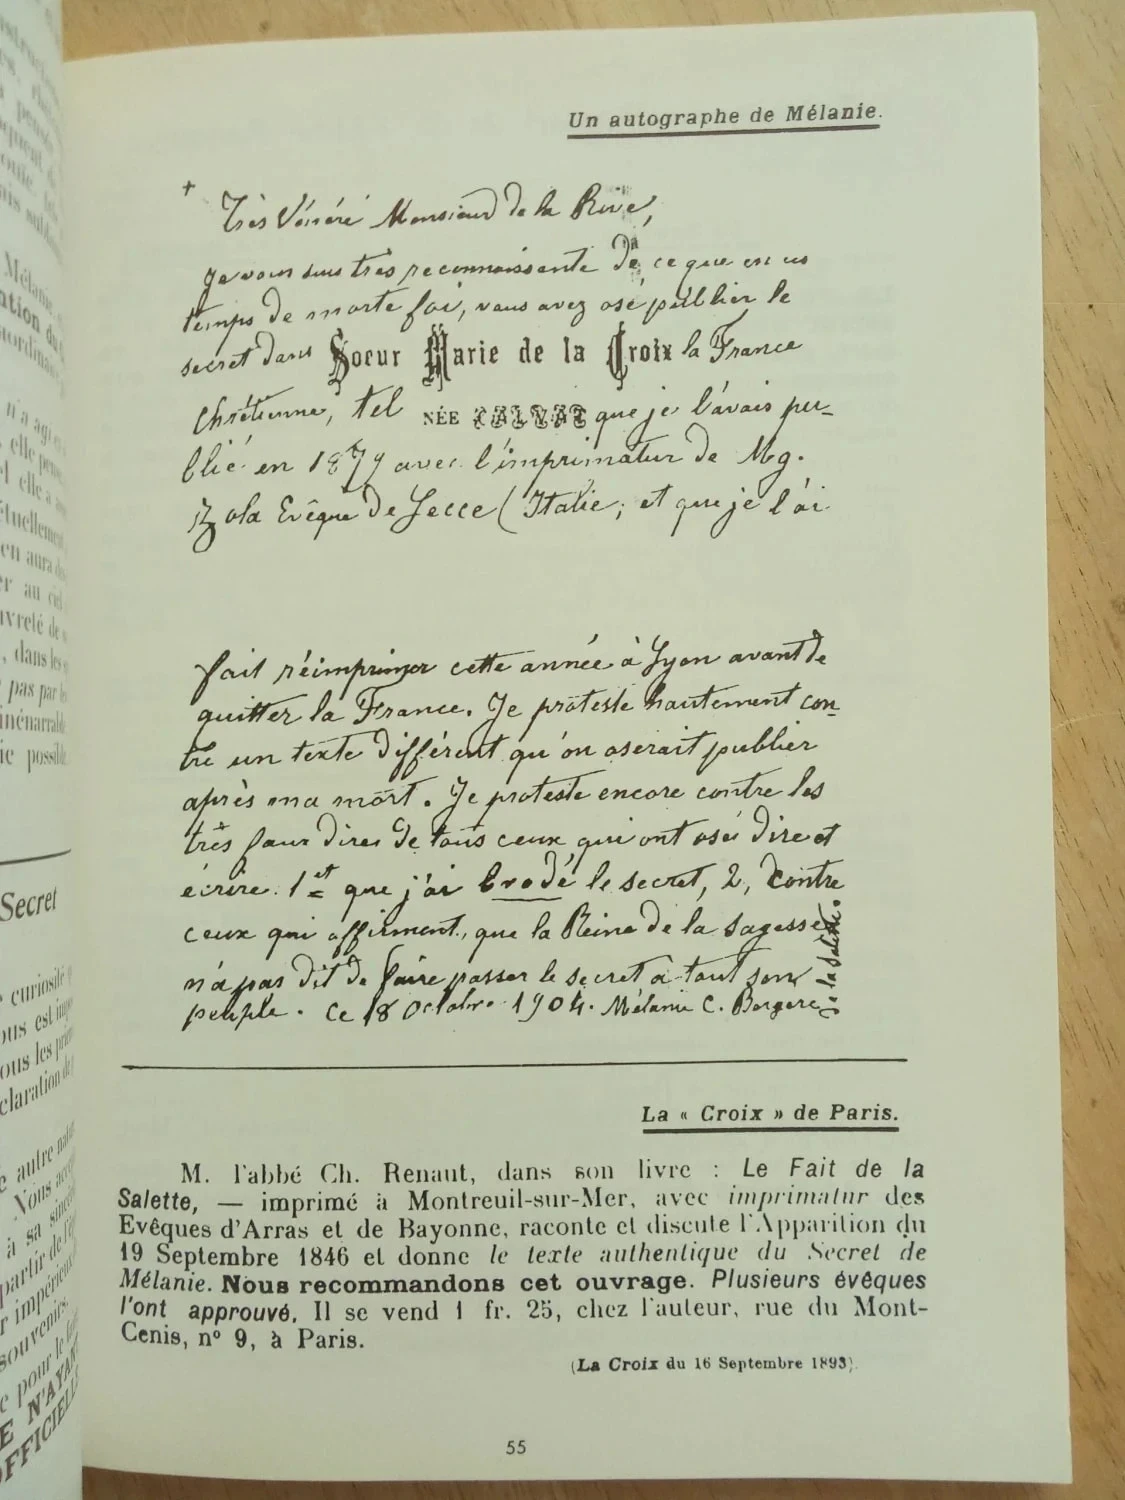 Un autographe de Mélanie.
+
Très Vénéré Monsieur de la Rive,
Je vous suis très reconnaissante de ce que en ces
temps de morte foi, vous avez osé publier le
secret dans Soeur Marie de la Croix la France
Chrétienne, tel NÉE CALVAT que je l'avais pu-
blié en 1879 avec l'imprimatur de Mg.
Zola Evêque de Lecce (Italie; et que je l'ai
fait réimprimer cette année à Lyon avant de
quitter la France. Je proteste hautement con-
tre un texte différent qu'on oserait publier
après ma mort. Je proteste encore contre les
très faux dires de tous ceux qui ont osé dire et
écrire. 1et que j'ai brodé le secret, 2, contre
ceux qui affirment, que la Reine de la sagesse
n'a pas dit de faire passer le secret à tout son
peuple. Ce 18 Octobre 1904. Mélanie C. Bergère
de la Salette.
La « Croix » de Paris.
M. l'abbé Ch. Renaut, dans son livre : Le Fait de la
Salette, — imprimé à Montreuil-sur-Mer, avec imprimatur des
Evêques d'Arras et de Bayonne, raconte et discute l'Apparition du
19 Septembre 1846 et donne le texte authentique du Secret de
Mélanie. Nous recommandons cet ouvrage. Plusieurs évêques
l'ont approuvé. Il se vend 1 fr. 25, chez l'auteur, rue du Mont-
Cenis, nº 9, à Paris.
(La Croix du 16 Septembre 1893).
55
Secret
curiosité